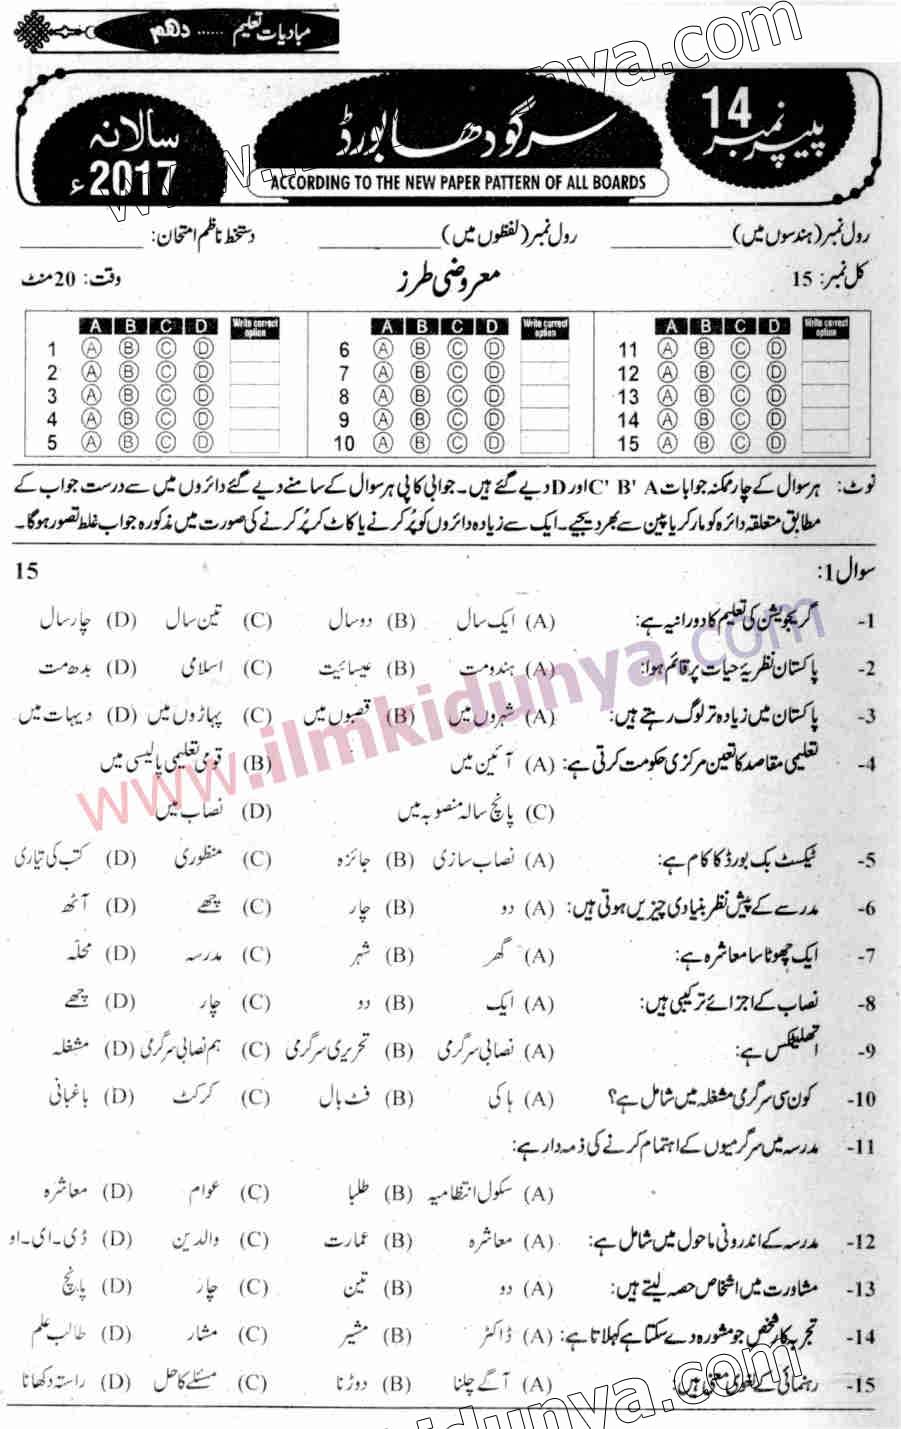 مبادیات تعلیم ...... دهم
پیپر نمبر 14
سرگودھا بورڈ
سالانہ 2017ء
ACCORDING TO THE NEW PAPER PATTERN OF ALL BOARDS
رول نمبر (ہندسوں میں) ____________ رول نمبر (لفظوں میں) ____________ دستخط ناظم امتحان: ____________
کل نمبر: 15 معروضی طرز وقت: 20 منٹ
A B C D Write correct option A B C D Write correct option A B C D Write correct option
1 A B C D 6 A B C D 11 A B C D
2 A B C D 7 A B C D 12 A B C D
3 A B C D 8 A B C D 13 A B C D
4 A B C D 9 A B C D 14 A B C D
5 A B C D 10 A B C D 15 A B C D
نوٹ: ہر سوال کے چار ممکنہ جوابات A 'B 'C اور D دیے گئے ہیں۔ جوابی کاپی ہر سوال کے سامنے دیے گئے دائروں میں سے درست جواب کے
مطابق متعلقہ دائرہ کو مارکر یا پین سے بھر دیجیے۔ ایک سے زیادہ دائروں کو پُر کرنے یا کاٹ کر پُر کرنے کی صورت میں مذکورہ جواب غلط تصور ہوگا۔
سوال 1: 15
1- گریجویشن کی تعلیم کا دورانیہ ہے: (A) ایک سال (B) دو سال (C) تین سال (D) چار سال
2- پاکستان نظریۂ حیات پر قائم ہوا: (A) ہندومت (B) عیسائیت (C) اسلامی (D) بدھ مت
3- پاکستان میں زیادہ تر لوگ رہتے ہیں: (A) شہروں میں (B) قصبوں میں (C) پہاڑوں میں (D) دیہات میں
4- تعلیمی مقاصد کا تعین مرکزی حکومت کرتی ہے: (A) آئین میں (B) قومی تعلیمی پالیسی میں
(C) پانچ سالہ منصوبہ میں (D) نصاب میں
5- ٹیکسٹ بک بورڈ کا کام ہے: (A) نصاب سازی (B) جائزہ (C) منظوری (D) کتب کی تیاری
6- مدرسے کے پیش نظر بنیادی چیزیں ہوتی ہیں: (A) دو (B) چار (C) چھے (D) آٹھ
7- ایک چھوٹا سا معاشرہ ہے: (A) گھر (B) شہر (C) مدرسہ (D) محلّہ
8- نصاب کے اجزائے ترکیبی ہیں: (A) ایک (B) دو (C) چار (D) چھے
9- اتھلیٹکس ہے: (A) نصابی سرگرمی (B) تحریری سرگرمی (C) ہم نصابی سرگرمی (D) مشغلہ
10- کون سی سرگرمی مشغلہ میں شامل ہے؟ (A) ہاکی (B) فٹ بال (C) کرکٹ (D) باغبانی
11- مدرسہ میں سرگرمیوں کے اہتمام کرنے کی ذمہ دار ہے:
(A) سکول انتظامیہ (B) طلبا (C) عوام (D) معاشرہ
12- مدرسہ کے اندرونی ماحول میں شامل ہے: (A) معاشرہ (B) عمارت (C) والدین (D) ڈی۔ای۔او
13- مشاورت میں اشخاص حصہ لیتے ہیں: (A) دو (B) تین (C) چار (D) پانچ
14- تجربہ کار شخص جو مشورہ دے سکتا ہے کہلاتا ہے: (A) ڈاکٹر (B) مشیر (C) مشار (D) طالب علم
15- رہنمائی کے لغوی معنی ہیں: (A) آگے چلنا (B) دوڑنا (C) مسئلے کا حل (D) راستہ دکھانا
www.ilmkidunya.com